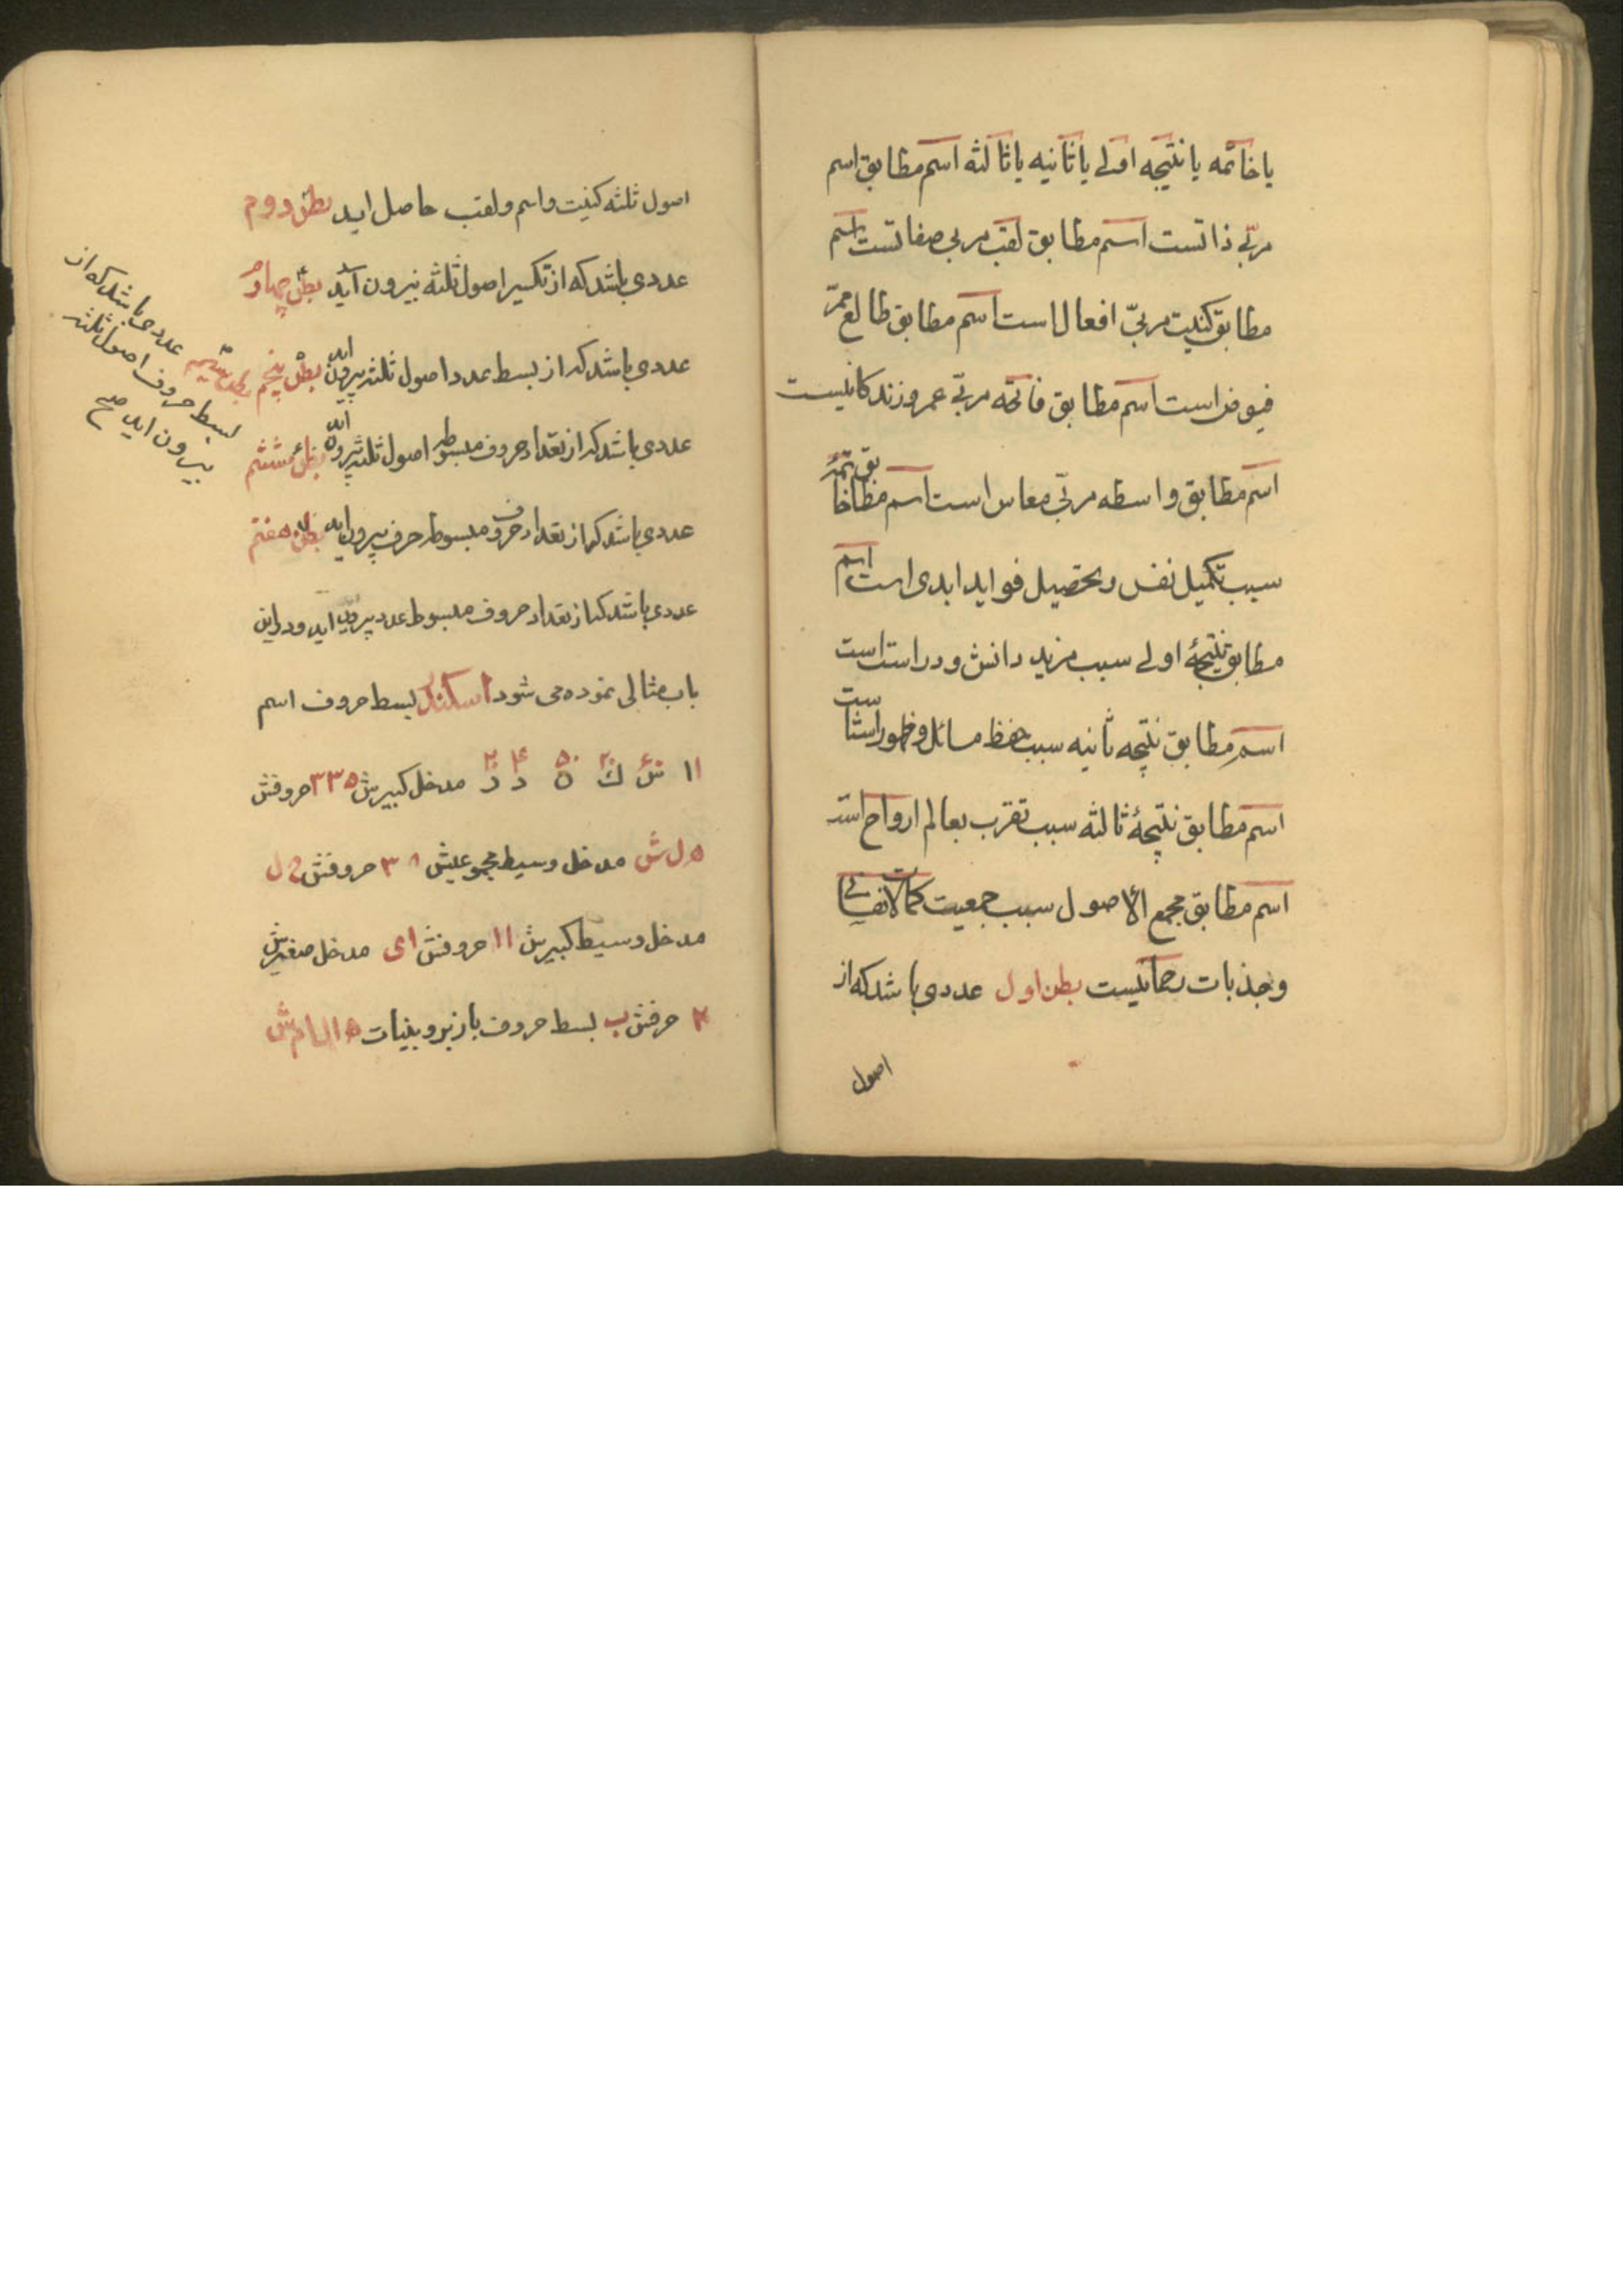 یا خاتمه یا نتیجه اولی یا ثانیه یا ثالثه اسم مطابق اسم
مربّی ذاتست اسم مطابق لقب مربی صفاتست اسم
مطابق کنیت مربّی افعال است اسم مطابق طالع ممرّ
فیوض است اسم مطابق فاتحه مربّی عمر و زندکانیست
اسم مطابق واسطه مربّی معاش است اسم مطابق خاتمه
سبب تکمیل نفس و تحصیل فواید ابدی است اسم
مطابق نتیجهٔ اولی سبب مزید دانش و دراست است
اسم مطابق نتیجه ثانیه سبب حفظ مسائل و ظهور
اسم مطابق نتیجهٔ ثالثه سبب تقرب بعالم ارواح است
اسم مطابق مجمع الاصول سبب جمعیت کمالات نفسانی
و جذبات رحمانیست بطن اول عددی باشد که از
اصول
اصول ثلثه کنیت و اسم و لقب حاصل اید بطن دوم
عددی باشد که از تکسیر اصول ثلثه بیرون آید بطن چهارم
عددی باشد که از بسط عدد اصول ثلثه بیرون اید بطن پنجم
عددی باشد که از تعداد حروف مبسوط اصول ثلثه بیرون اید بطن ششم
عددی باشد که از تعداد حروف مبسوط حرف بیرون اید بطن هفتم
عددی باشد که از تعداد حروف مبسوط عدد بیرون اید و در این
باب مثالی نموده می شود اسکندر بسط حروف اسم
ا ۱ س ۶۰ ك ۲۰ ن ۵۰ د ۴ ر ۲۰۰ مدخل کبیرش ۳۳۵ حروفش
ه ل ش مدخل وسیط مجموعیش ۳۸ حروفش ح ل
مدخل وسیط کبیرش ۱۱ حروفش ا ی مدخل صغیرش
۲ حرفش ب بسط حروف با زبر و بینات ه ا ل ا م ش
بطن سیم عددی باشد که از
بسط حروف اصول ثلثه
بیرون اید صح